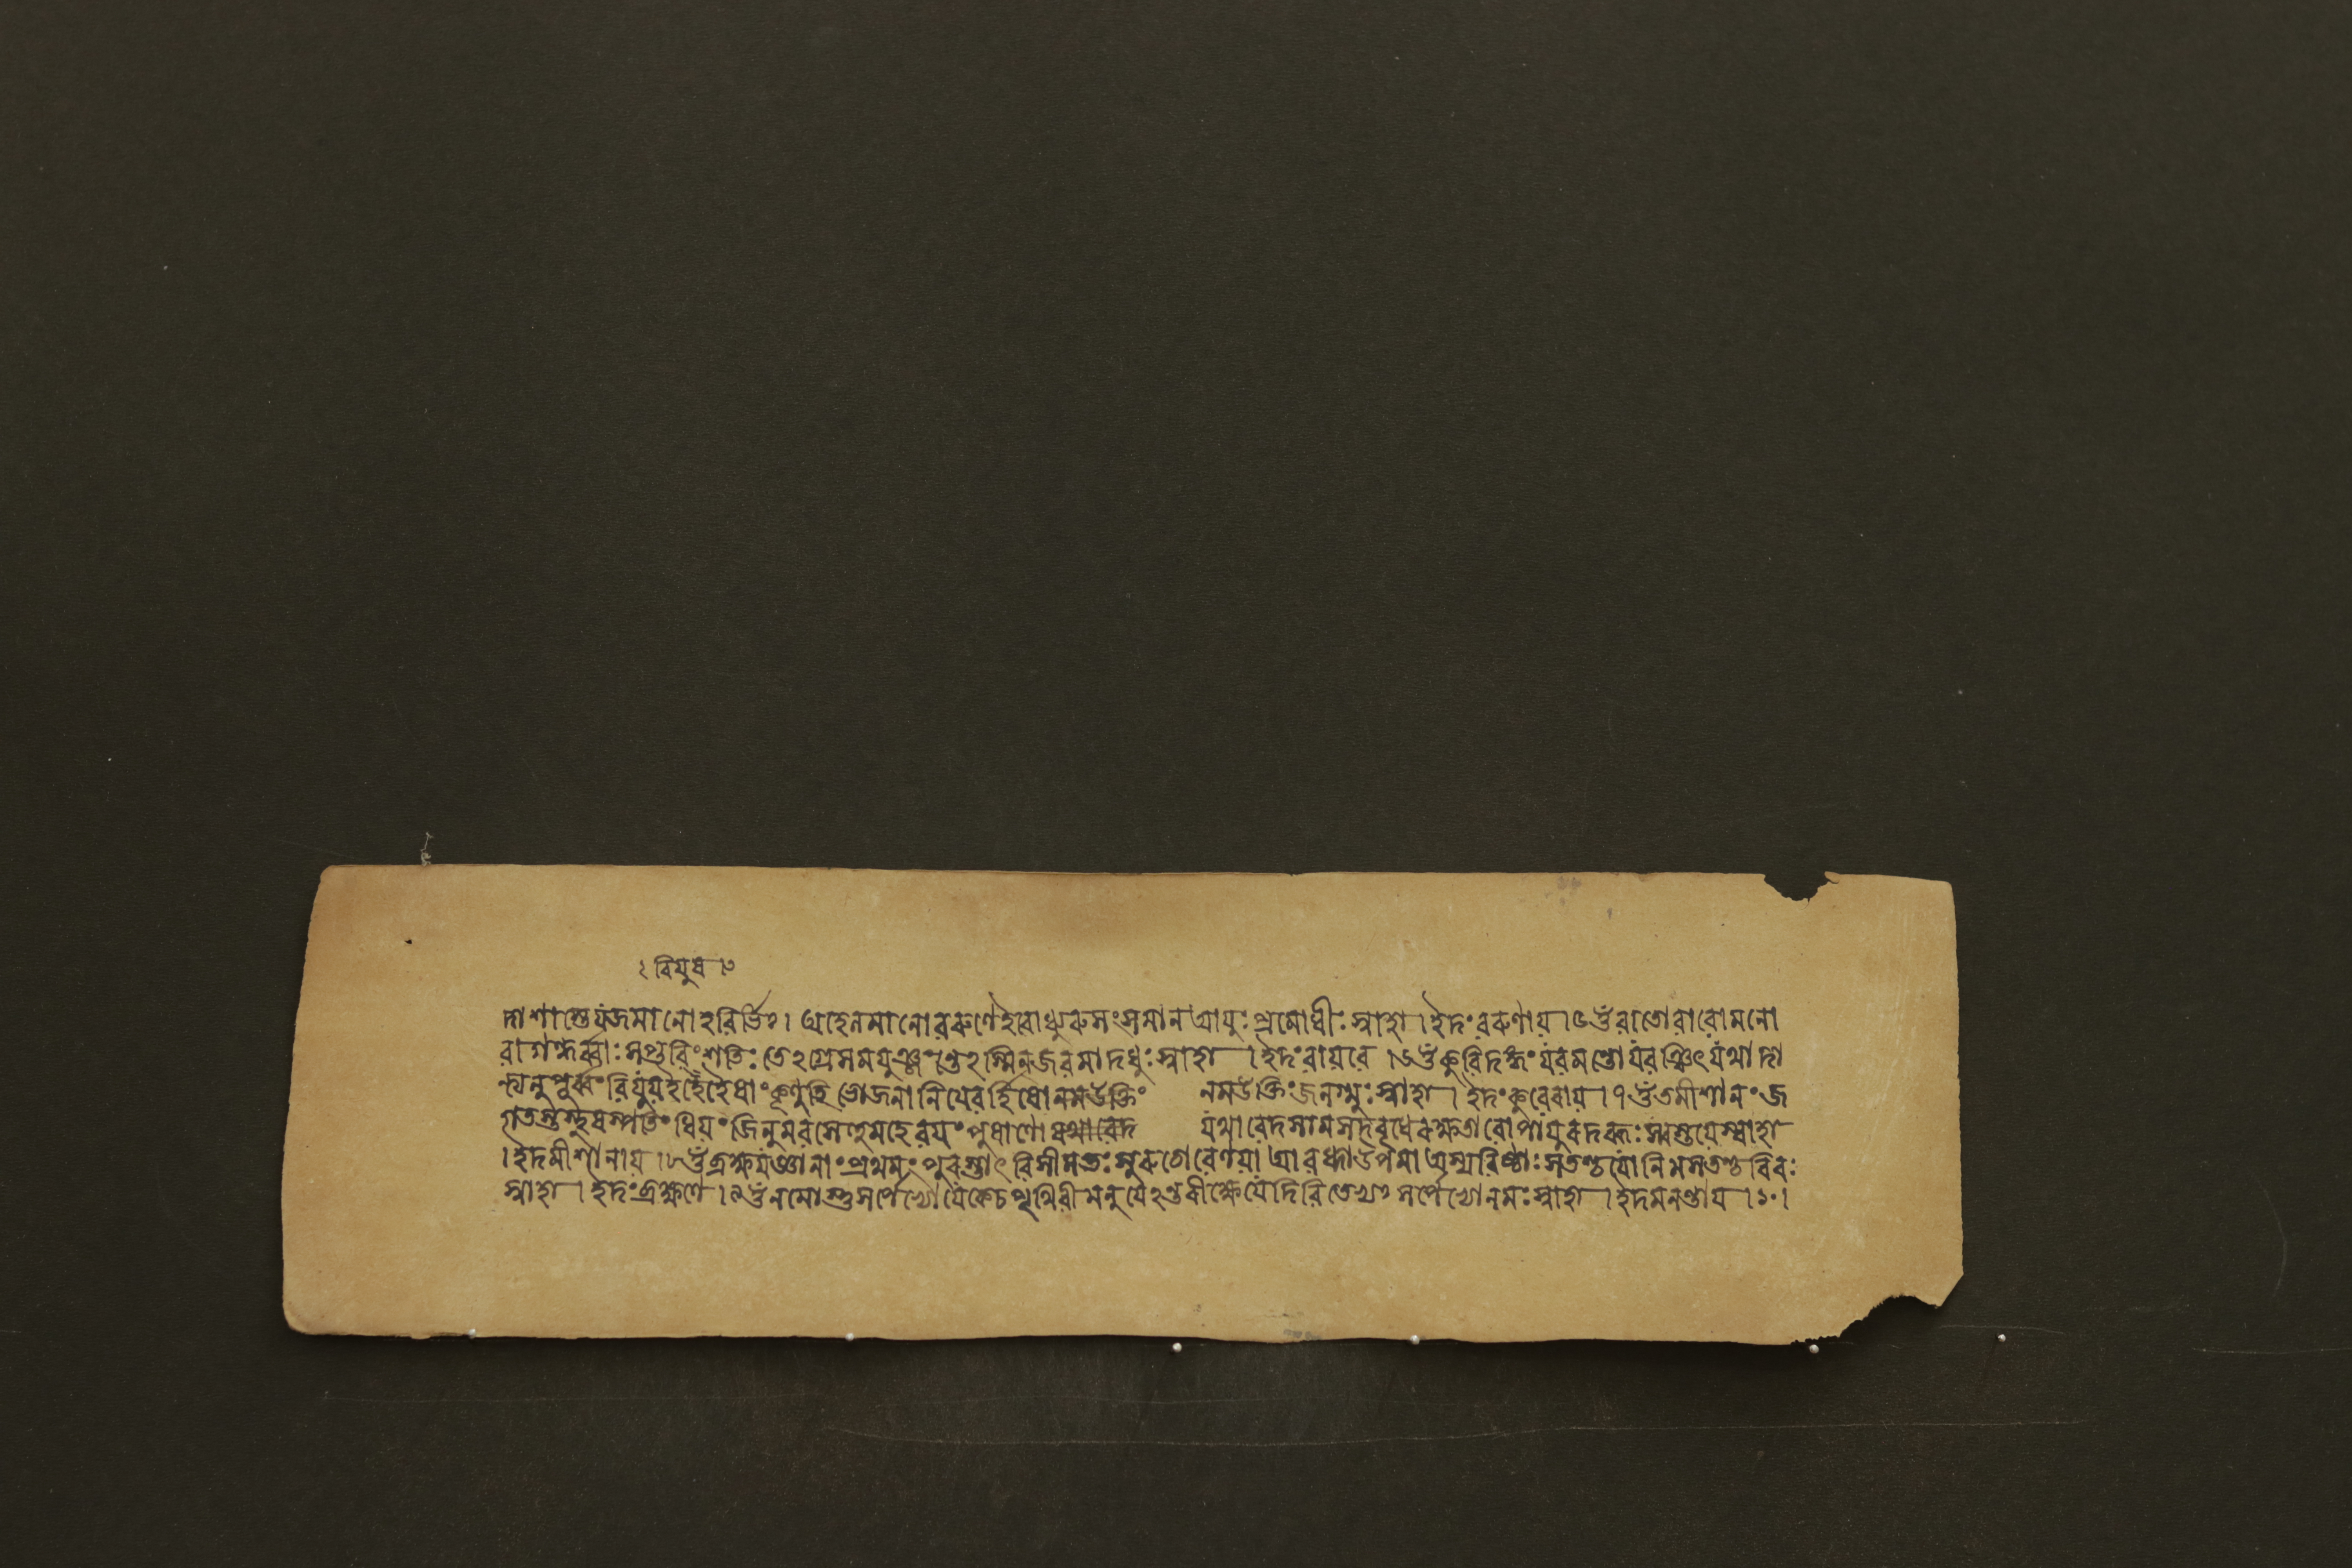 দাশাস্তে যজমানো হবির্ভিঃ। অহেলমানো বরুণেহবোধ্যুরুসংসমানআয়ুঃপ্রমোষীঃ স্বাহা।ইদং বরুণায়।৫ওঁ বাতোবাবোমনো
বাগন্ধর্ব্বাঃসপ্তবিংশতিঃ তেঽগ্রেসমযুঞ্জঁস্তেঽস্মিনজবমাদধুঃ স্বাহা ।ইদং বায়বে ।৬ওঁকুবিদঙ্গং যবমন্তোযবঞ্চিৎ যথাদা
ন্ত্যনুপূর্ব্বং বিযুয়ইহেহৈষাং কৃণুহি ভোজনানিযেবর্হিষোনমউক্তিং নমউক্তিং জনগ্মুঃস্বাহা।ইদং কুবেরায়।৭ওঁতমীশানং জ
গতস্তস্থুষস্পতিং ধিয়ং জিনুমবসেহুমহেবয়ং পুষাণো যথাবেদ যথাবেদসামসদবৃধেরক্ষতারোপায়ুরদব্ধঃস্বস্তয়েস্বাহা
।ইদমীশানায়।৮ওঁব্রহ্মযজ্ঞানাং প্রথমং পুরস্তাৎ বিসীমতঃ সুরুচোবেণয়া আবরুধ্নাউপমাঅস্যবিষ্ঠাঃসতশ্চযোনিমসতশ্চবিবঃ
স্বাহা।ইদং ব্রহ্মণে।৯ওঁনমোস্তুসর্পেভ্যোযেকেচপৃথিবীমনুযেঽন্তরীক্ষেযেদিবিতেভ্যঃ সর্পেভ্যোনমঃস্বাহা।ইদমনন্তায়।১০।